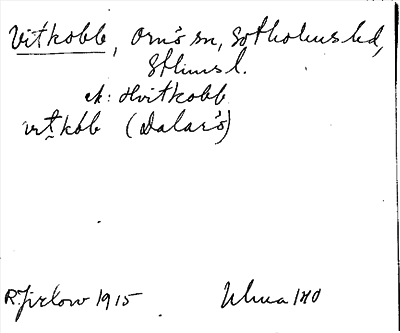 Vitkobb, Ornö sn, Sotholms hd,
Sthlms l.
ek: Hvitkobb
vɩtkòb (Dalarö)
R. Jirlow 1915 Ulma 140